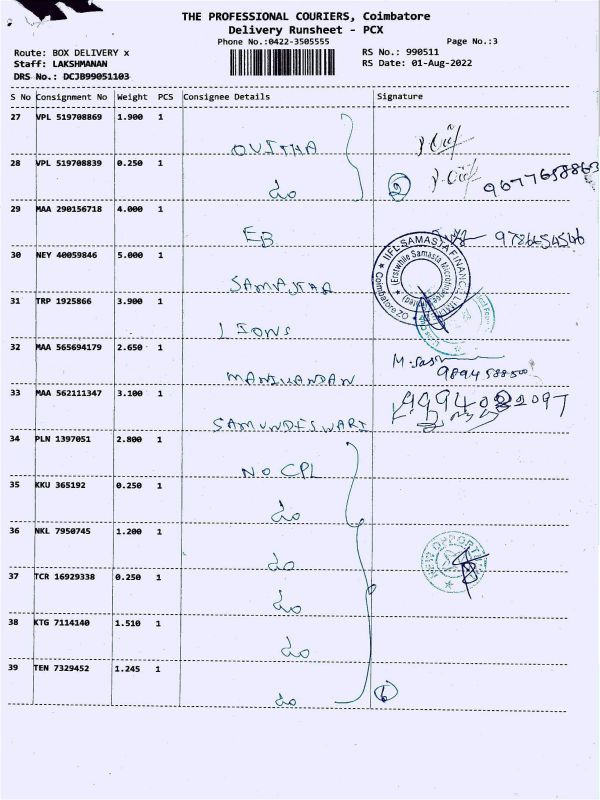 THE PROFESSIONAL COURIERS, Coimbatore
Delivery Runsheet - PCX
Phone No.:0422-3505555
Page No.:3
Route: BOX DELIVERY x
RS No.: 990511
Staff: LAKSHMANAN
RS Date: 01-Aug-2022
DRS No.: DCJB99051103
S No Consignment No Weight PCS Consignee Details Signature
27 VPL 519708869 1.900 1
28 VPL 519708839 0.250 1
do 2 9677658863
29 MAA 290156718 4.000 1
EB
30 NEY 40059846 5.000 1
IIFL SAMASTA FINANCE LIMITED
(Erstwhile Samasta Microfinance Limited)
Coimbatore ZO
31 TRP 1925866 3.900 1
LIONS
32 MAA 565694179 2.650 1
MANIKANDAN
33 MAA 562111347 3.100 1
SAMUNDESWARI
34 PLN 1397051 2.800 1
NO CPL
35 KKU 365192 0.250 1
do
36 NKL 7950745 1.200 1
do
37 TCR 16929338 0.250 1
do
38 KTG 7114140 1.510 1
do
39 TEN 7329452 1.245 1
do 6